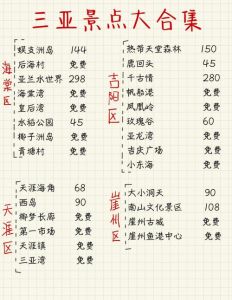 三亚景点大合集
海棠区
蜈支洲岛 144
后海村 免费
亚兰水世界 298
海棠湾 免费
皇后湾 免费
水稻公园 45
椰子洲岛 免费
青塘村 免费
吉阳区
热带天堂森林 150
鹿回头 45
千古情 280
帆船港 免费
凤凰岭 免费
玫瑰谷 60
亚龙湾 免费
吉庆广场 免费
小东海 免费
天涯区
天涯海角 68
西岛 90
椰梦长廊 免费
第一市场 免费
天涯镇 免费
三亚湾 免费
崖州区
大小洞天 90
南山文化景区 108
崖州古城 免费
崖州渔港中心 免费